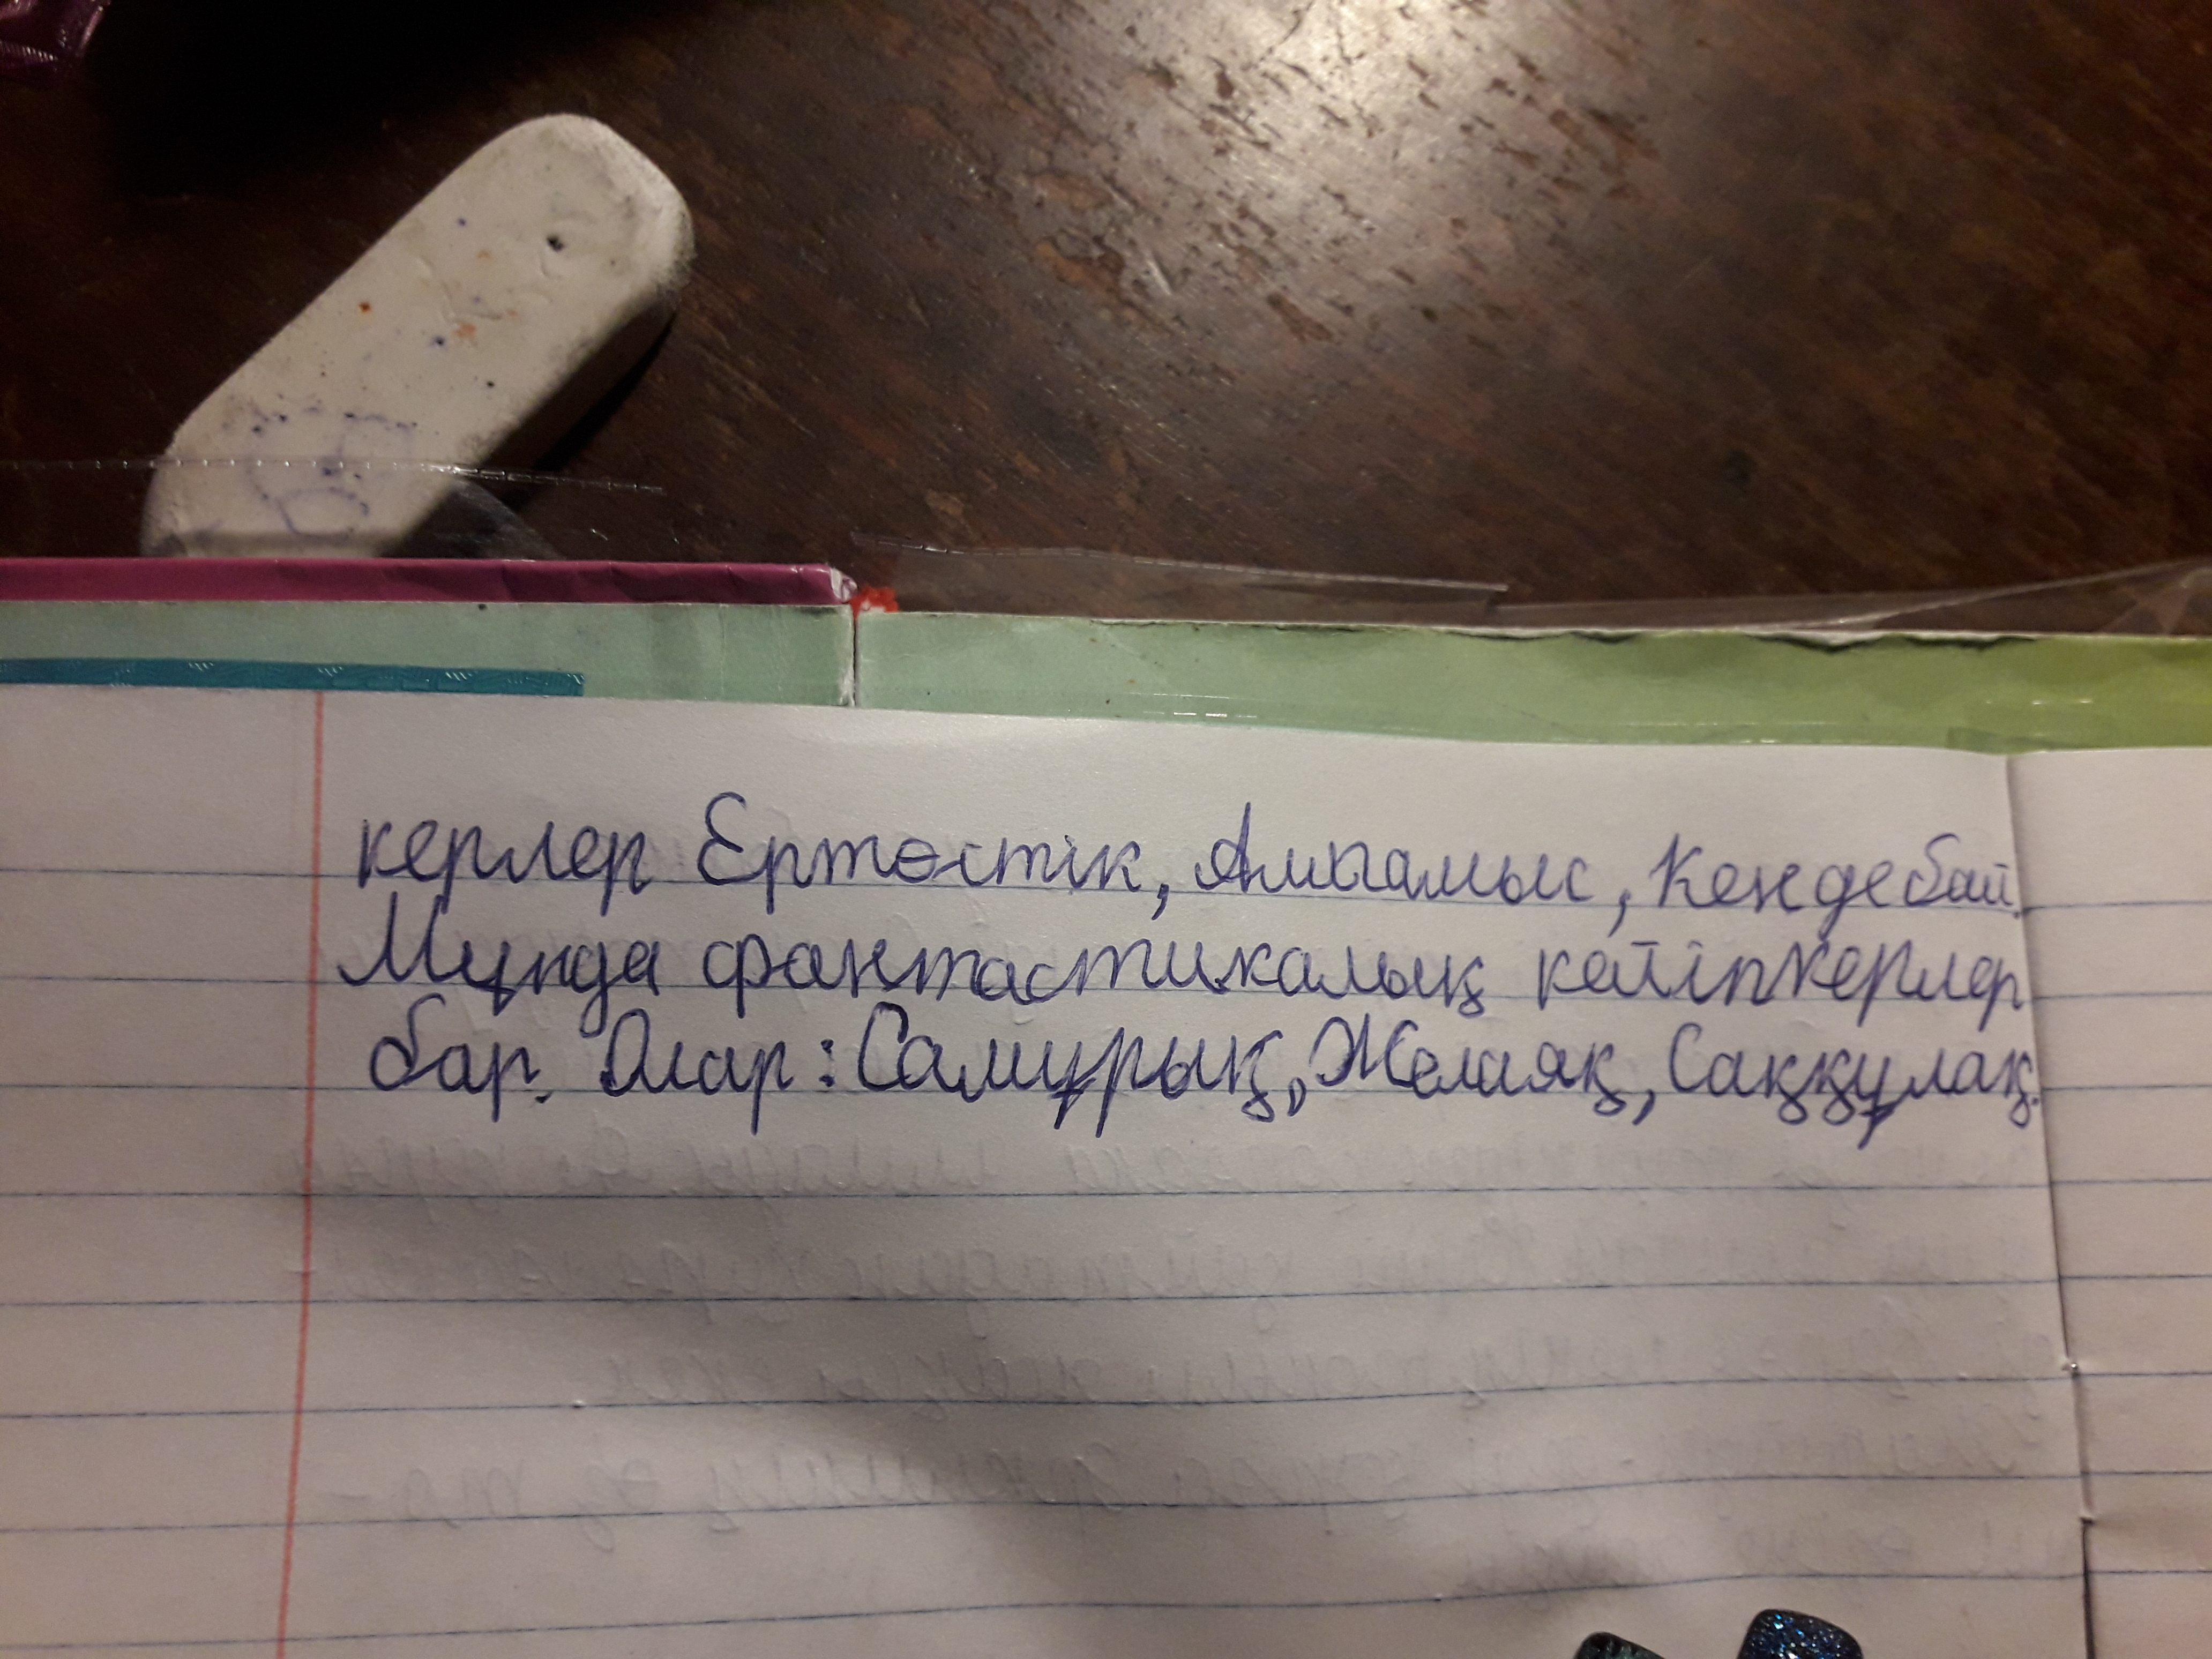 керлер Ертөстік, Алпамыс, Кендебай.
Мұнда фантастикалық кейіпкерлер
бар. Олар: Самұрық, Желаяқ, Саққұлақ.